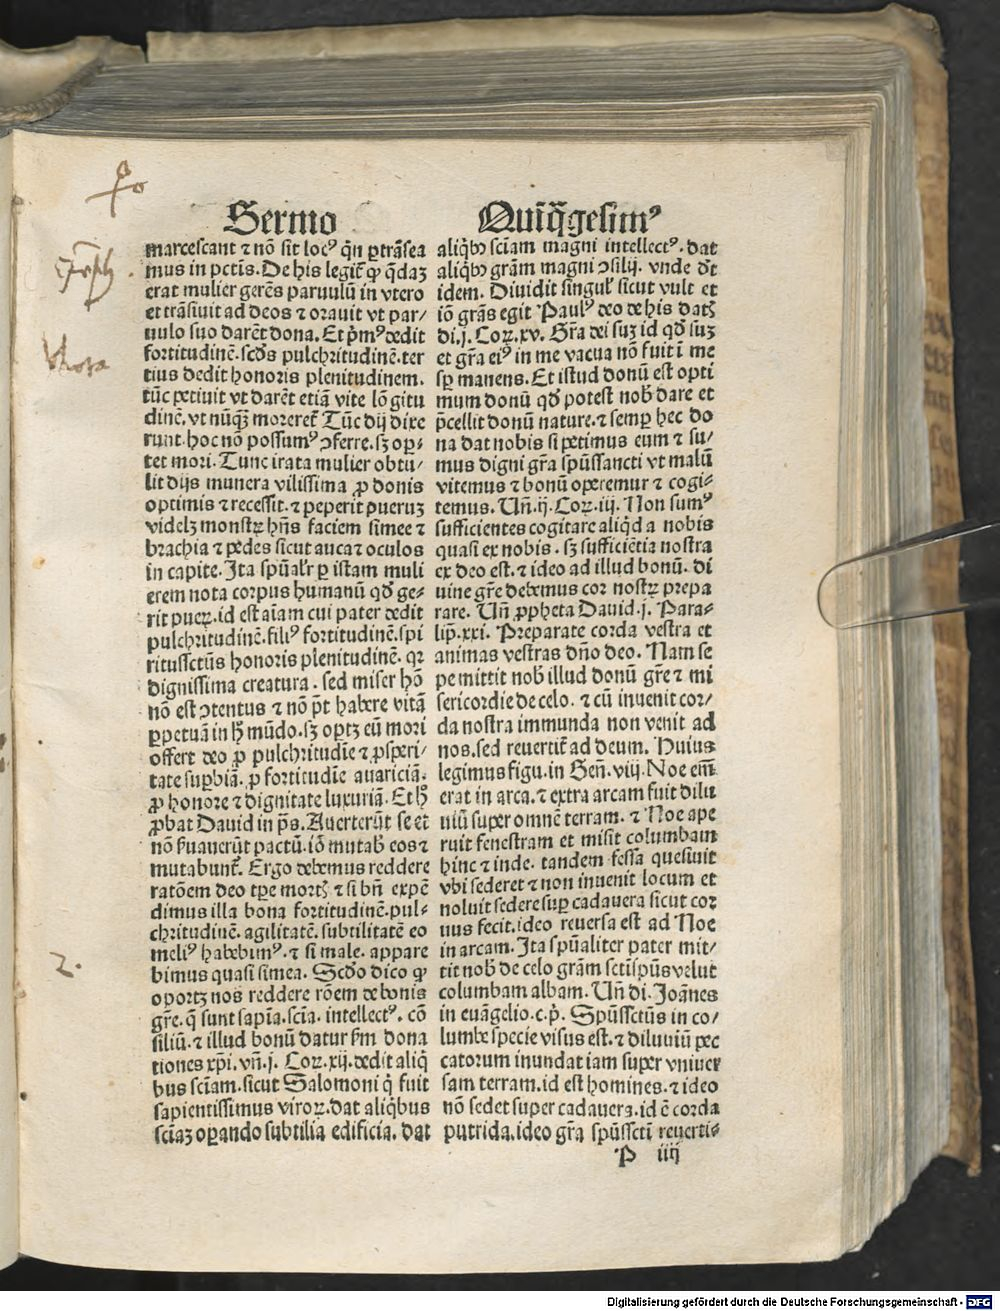 Sermo Quīq̄gesimꝰ
marcescant ⁊ nō sit locꝰ q̄n ꝑtrāsea
mus in pctis. De his legit̄ ꝙ q̄daꝫ
erat mulier gerēs paruulū in vtero
et trāsiuit ad deos ⁊ orauit vt par/
uulo suo darēt dona. Et p̄mꝰ dedit
fortitudinē. scd̄s pulchritudinē. ter
tius dedit honoris plenitudinem.
tūc petiuit vt darēt etiā vite lōgitu
dinē. vt nūq̄ꝫ moreret̄ Tūc dij dixe
runt. hoc nō possumꝰ ↄferre. sꝫ opꝛ-
tet mori. Tunc irata mulier obtu/
lit dijs munera vilissima ꝓ donis
optimis ⁊ recessit. ⁊ peperit pueruꝫ
videlꝫ monstrꝝ hn̄s faciem simee ⁊
brachia ⁊ pedes sicut auca ⁊ oculos
in capite. Ita spūal'r ꝑ istam muli
erem nota corpus humanū qd̄ ge-
rit pueꝝ. id est aīam cui pater dedit
pulchritudinē. filiꝰ fortitudinē. spi
ritussctūs honoris plenitudinē. qꝛ
dignissima creatura. sed miser hō
nō est ↄtentus ⁊ nō pt̄ habere vitā
ꝑpetuā in h̄ mūdo. sꝫ optꝫ eū mori
offert deo ꝓ pulchritudīe ⁊ ꝓsperi/
tate suꝑbiā. ꝓ fortitudīe auariciā.
ꝓ honore ⁊ dignitate luxuriā. Et h̄
ꝓbat Dauid in ps̄. Auerterūt se et
nō ẜuauerūt pactū. iō mutab̄ eos ⁊
mutabunt̄. Ergo debemus reddere
ratōem deo tꝑe mortꝭ ⁊ si bn̄ expē
dimus illa bona fortitudinē. pul-
chritudinē. agilitatē. subtilitatē eo
meliꝰ habebimꝰ. ⁊ si male. appare
bimus quasi simea. Scd̄o dico ꝙ
oportꝫ nos reddere rōem de bonis
gr̄e. q̄ sunt sapīa. scīa. intellectꝰ. cō
siliū. ⁊ illud bonū datur ẜm dona
tiones xp̄i. vn̄. j. Coꝝ. xij. dedit aliq̄
bus scīam. sicut Salomoni q̇ fuit
sapientissimus viroꝝ. dat aliq̄bus
scīaꝫ oꝑando subtilia edificia. dat
aliq̄bꝰ scīam magni intellectꝰ. dat
aliq̄bꝰ grām magni ↄsilij. vnde dt̄
idem. Diuidit singul' sicut vult et
iō grās egit Paulꝰ deo de his datꝭ
di. j. Coꝝ. xv. Gr̄a dei suꝫ id qd̄ suꝫ
et gr̄a eiꝰ in me vacua nō fuit ī me
sꝑ manens. Et istud donū est opti
mum donū qd̄ potest nob̄ dare et
p̄cellit donū nature. ⁊ semꝑ hec do
na dat nobis si petimus eum ⁊ su/
mus digni gr̄a spūssancti vt malū
vitemus ⁊ bonū operemur ⁊ cogi-
temus. Un̄. ij. Coꝝ. iij. Non sumꝰ
sufficientes cogitare aliqd̄ a nobis
quasi ex nobis. sꝫ sufficiētia nostra
ex deo est. ⁊ ideo ad illud bonū. di
uine gr̄e debemus cor nostꝝ prepa
rare. Un̄ ꝓpheta Dauid. j. Para-
lip̄. xxi. Preparate corda vestra et
animas vestras dn̄o deo. Nam se
pe mittit nob̄ illud donū gr̄e ⁊ mi
sericordie de celo. ⁊ cū inuenit cor/
da nostra immunda non venit ad
nos. sed reuertit̄ ad deum. Huius
legimus figu. in Gen̄. viij. Noe em̄
erat in arca. ⁊ extra arcam fuit dilu
uiū super omnē terram. ⁊ Noe ape
ruit fenestram et misit columbam
hinc ⁊ inde. tandem fessa quesiuit
vbi sederet ⁊ non inuenit locum et
noluit sedere suꝑ cadauera sicut coꝛ
uus fecit. ideo reuersa est ad Noe
in arcam. Ita spūaliter pater mit/
tit nob̄ de celo grām sctīspūs velut
columbam albam. Un̄ di. Joānes
in euāgelio. c. p̄. Spūssctūs in co/
lumbe specie visus est. ⁊ diluuiū pec
catorum inundat iam super vniuer
sam terram. id est homines. ⁊ ideo
nō sedet super cadauera. id ē corda
putrida. ideo gr̄a spūssctī reuerti-
P iiij
2.
Digitalisierung gefördert durch die Deutsche Forschungsgemeinschaft - DFG